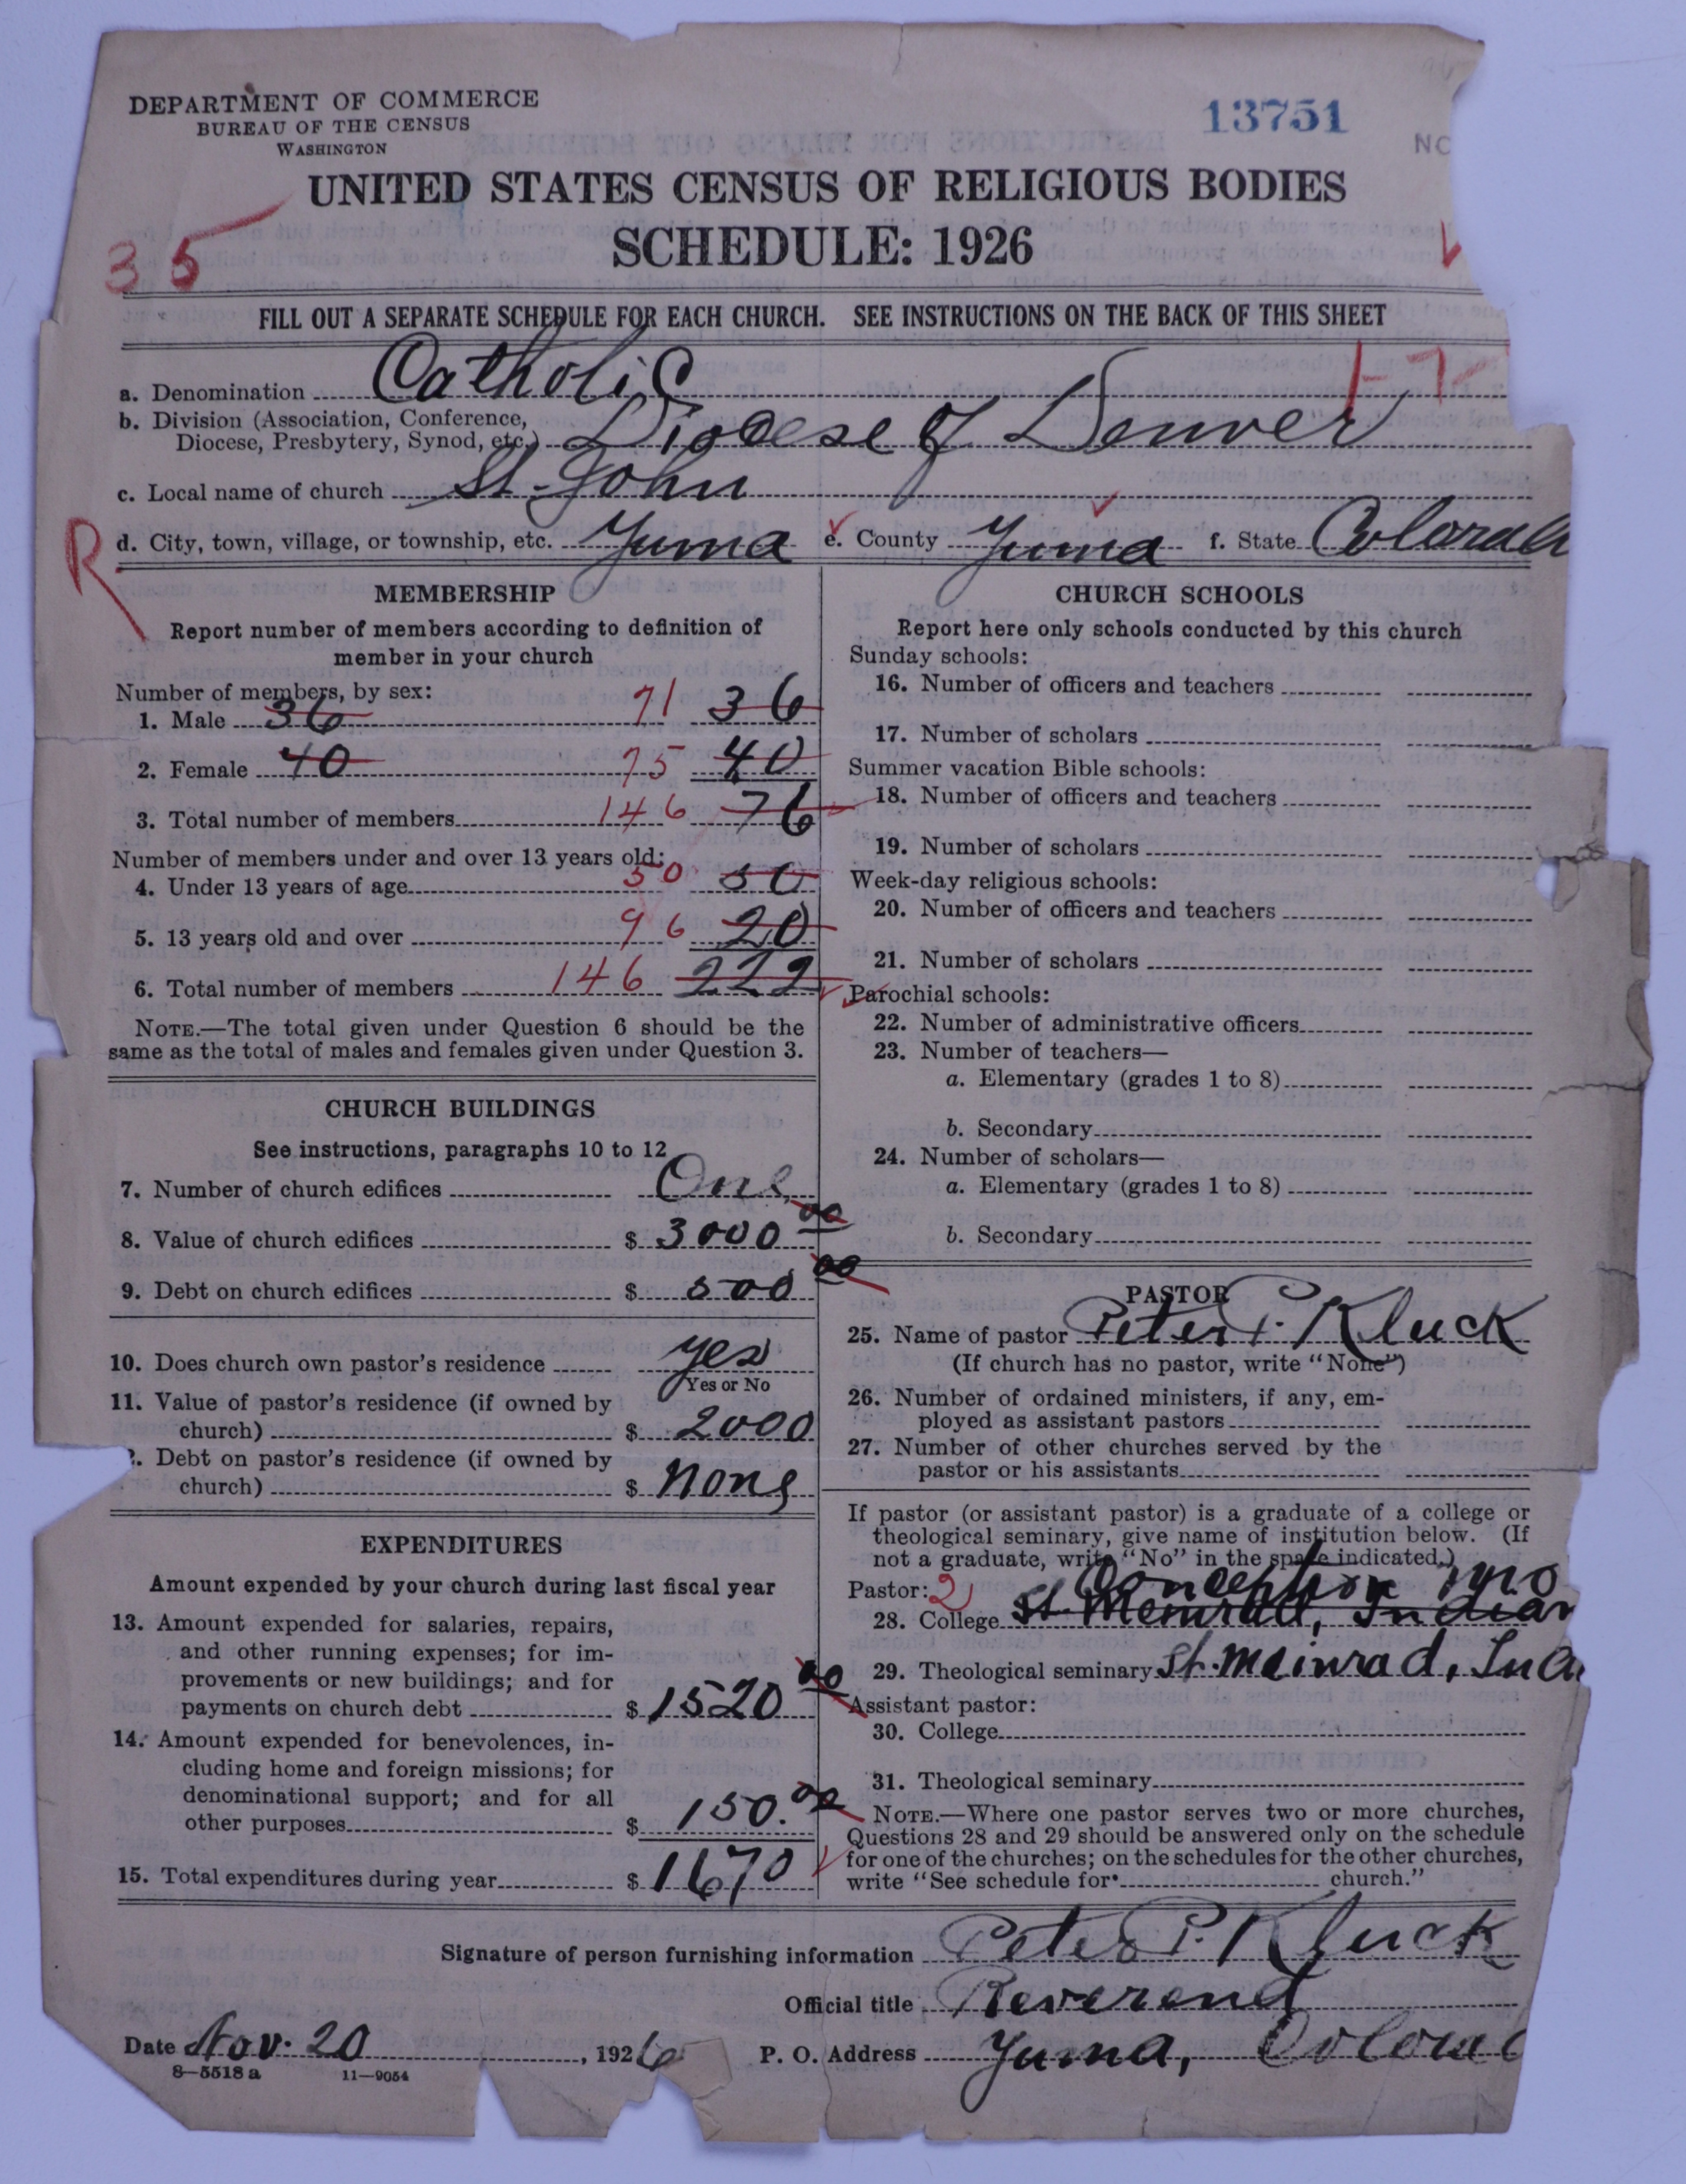 DEPARTMENT OF COMMERCE
BUREAU OF THE CENSUS
WASHINGTON
13751
NC
UNITED STATES CENSUS OF RELIGIOUS BODIES
SCHEDULE: 1926
35
FILL OUT A SEPARATE SCHEDULE FOR EACH CHURCH. SEE INSTRUCTIONS ON THE BACK OF THIS SHEET
1-7
a. Denomination Catholic
b. Division (Association, Conference,
Diocese, Presbytery, Synod, etc.) Diocese of Denver
c. Local name of church St. John
R
d. City, town, village, or township, etc. Yuma e. County Yuma f. State Colorad
MEMBERSHIP
Report number of members according to definition of
member in your church
Number of members, by sex:
1. Male 36 71 36
2. Female 40 75 40
3. Total number of members 146 76
Number of members under and over 13 years old:
4. Under 13 years of age 50 50
5. 13 years old and over 96 20
6. Total number of members 146 222
NOTE.—The total given under Question 6 should be the
same as the total of males and females given under Question 3.
CHURCH BUILDINGS
See instructions, paragraphs 10 to 12
7. Number of church edifices One
8. Value of church edifices $ 3000 00
9. Debt on church edifices $ 500 00
10. Does church own pastor's residence yes
Yes or No
11. Value of pastor's residence (if owned by
church) $ 2000
2. Debt on pastor's residence (if owned by
church) $ none
EXPENDITURES
Amount expended by your church during last fiscal year
13. Amount expended for salaries, repairs,
and other running expenses; for im-
provements or new buildings; and for
payments on church debt $ 1520 00
14. Amount expended for benevolences, in-
cluding home and foreign missions; for
denominational support; and for all
other purposes $ 150.00
15. Total expenditures during year $ 1670
CHURCH SCHOOLS
Report here only schools conducted by this church
Sunday schools:
16. Number of officers and teachers
17. Number of scholars
Summer vacation Bible schools:
18. Number of officers and teachers
19. Number of scholars
Week-day religious schools:
20. Number of officers and teachers
21. Number of scholars
Parochial schools:
22. Number of administrative officers
23. Number of teachers—
a. Elementary (grades 1 to 8)
b. Secondary
24. Number of scholars—
a. Elementary (grades 1 to 8)
b. Secondary
PASTOR
25. Name of pastor Peter P. Kluck
(If church has no pastor, write "None")
26. Number of ordained ministers, if any, em-
ployed as assistant pastors
27. Number of other churches served by the
pastor or his assistants
If pastor (or assistant pastor) is a graduate of a college or
theological seminary, give name of institution below. (If
not a graduate, write "No" in the space indicated.)
Pastor: 2 Conception Mo
28. College St. Meinrad, Indian
29. Theological seminary St. Meinrad, Ind
Assistant pastor:
30. College
31. Theological seminary
NOTE.—Where one pastor serves two or more churches,
Questions 28 and 29 should be answered only on the schedule
for one of the churches; on the schedules for the other churches,
write "See schedule for church."
Signature of person furnishing information Peter P. Kluck
Official title Reverend
Date Nov. 20, 1926 P. O. Address Yuma, Colorad
8—5518 a 11—9054